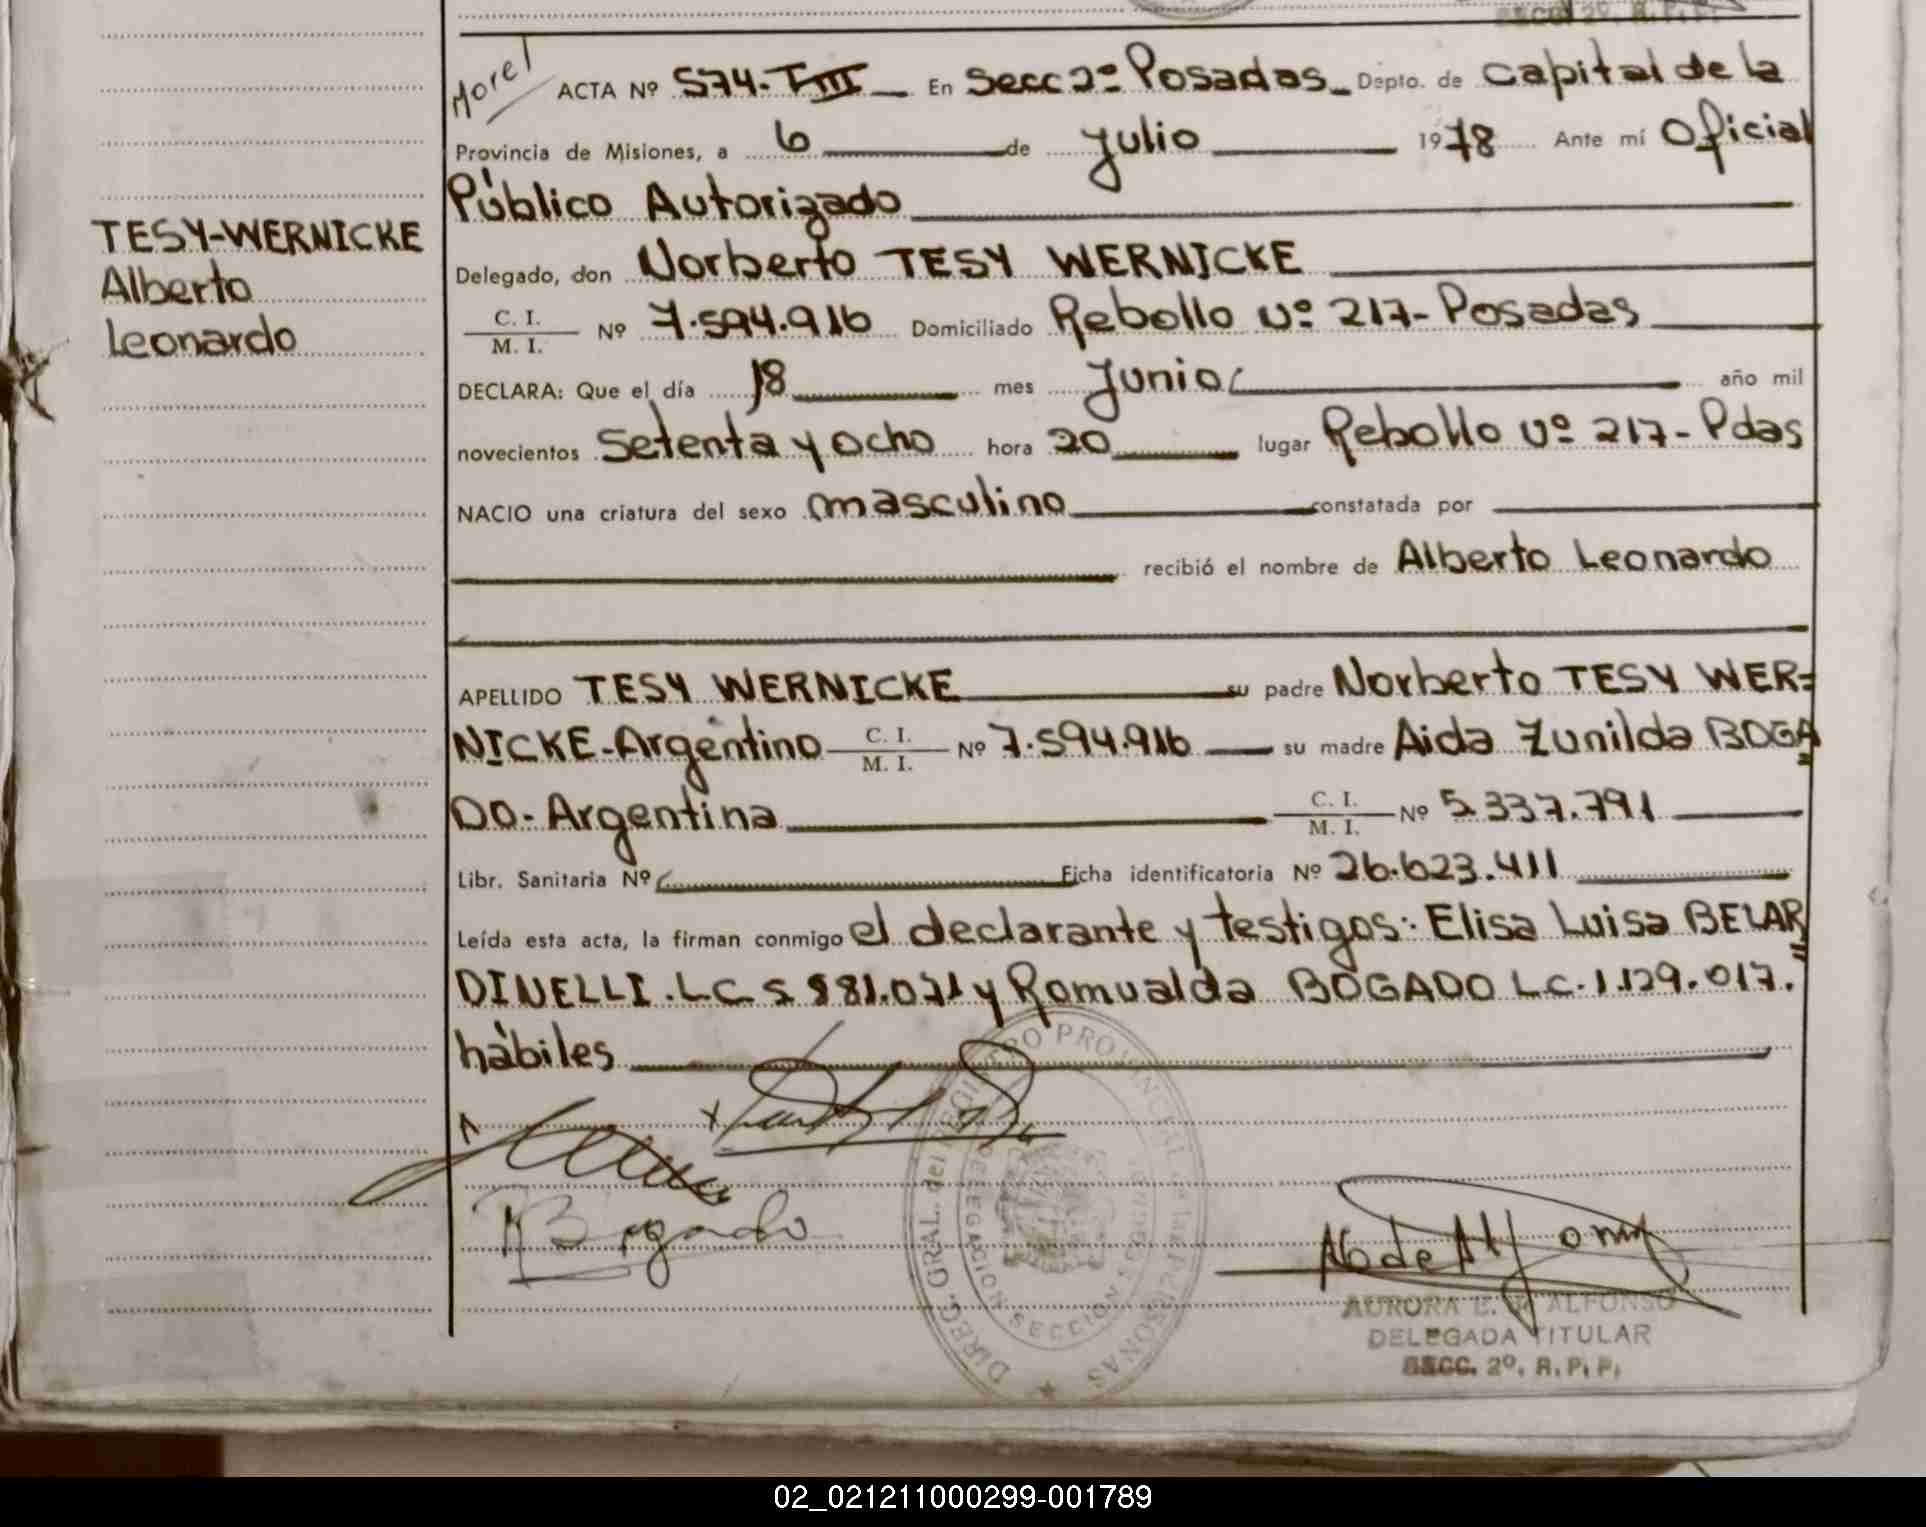 SECC. 2º. R. P. P.
Morel
ACTA Nº 574-TIII En Secc 2º Posadas Depto. de Capital de la
Provincia de Misiones, a 6 de Julio 1978 Ante mí Oficial
Público Autorizado
TESY-WERNICKE
Alberto
Leonardo
Delegado, don Norberto TESY WERNICKE
C. I. / M. I. Nº 7.594.916 Domiciliado Rebollo Nº 217- Posadas
DECLARA: Que el día 18 mes Junio año mil
novecientos setenta y ocho hora 20 lugar Rebollo Nº 217- Pdas
NACIO una criatura del sexo masculino constatada por
recibió el nombre de Alberto Leonardo
APELLIDO TESY WERNICKE su padre Norberto TESY WER=
NICKE-Argentino C. I. / M. I. Nº 7.594.916 su madre Aida Zunilda BOGA=
DO- Argentina C. I. / M. I. Nº 5.337.791
Libr. Sanitaria Nº Ficha identificatoria Nº 26.623.411
Leída esta acta, la firman conmigo el declarante y testigos: Elisa Luisa BELAR=
DINELLI. LC 5 981.071 y Romualda BOGADO LC. 1.129.017.
hábiles
R Bogado
DIREC. GRAL. del REGISTRO PROVINCIAL de las PERSONAS
DELEGACION SECCION SEGUNDA
AURORA E. de ALFONSO
DELEGADA TITULAR
SECC. 2º. R. P. P.
02_021211000299-001789